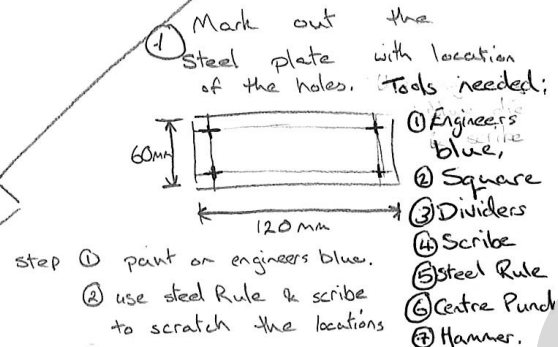 ① Mark out the
Steel plate with location
of the holes. Tools needed;
① Engineers
blue,
② Square
③ Dividers
④ Scribe
⑤ Steel Rule
⑥ Centre Punch
⑦ Hammer.
60mm
120mm
step ① paint on engineers blue.
② use steel Rule & scribe
to scratch the locations